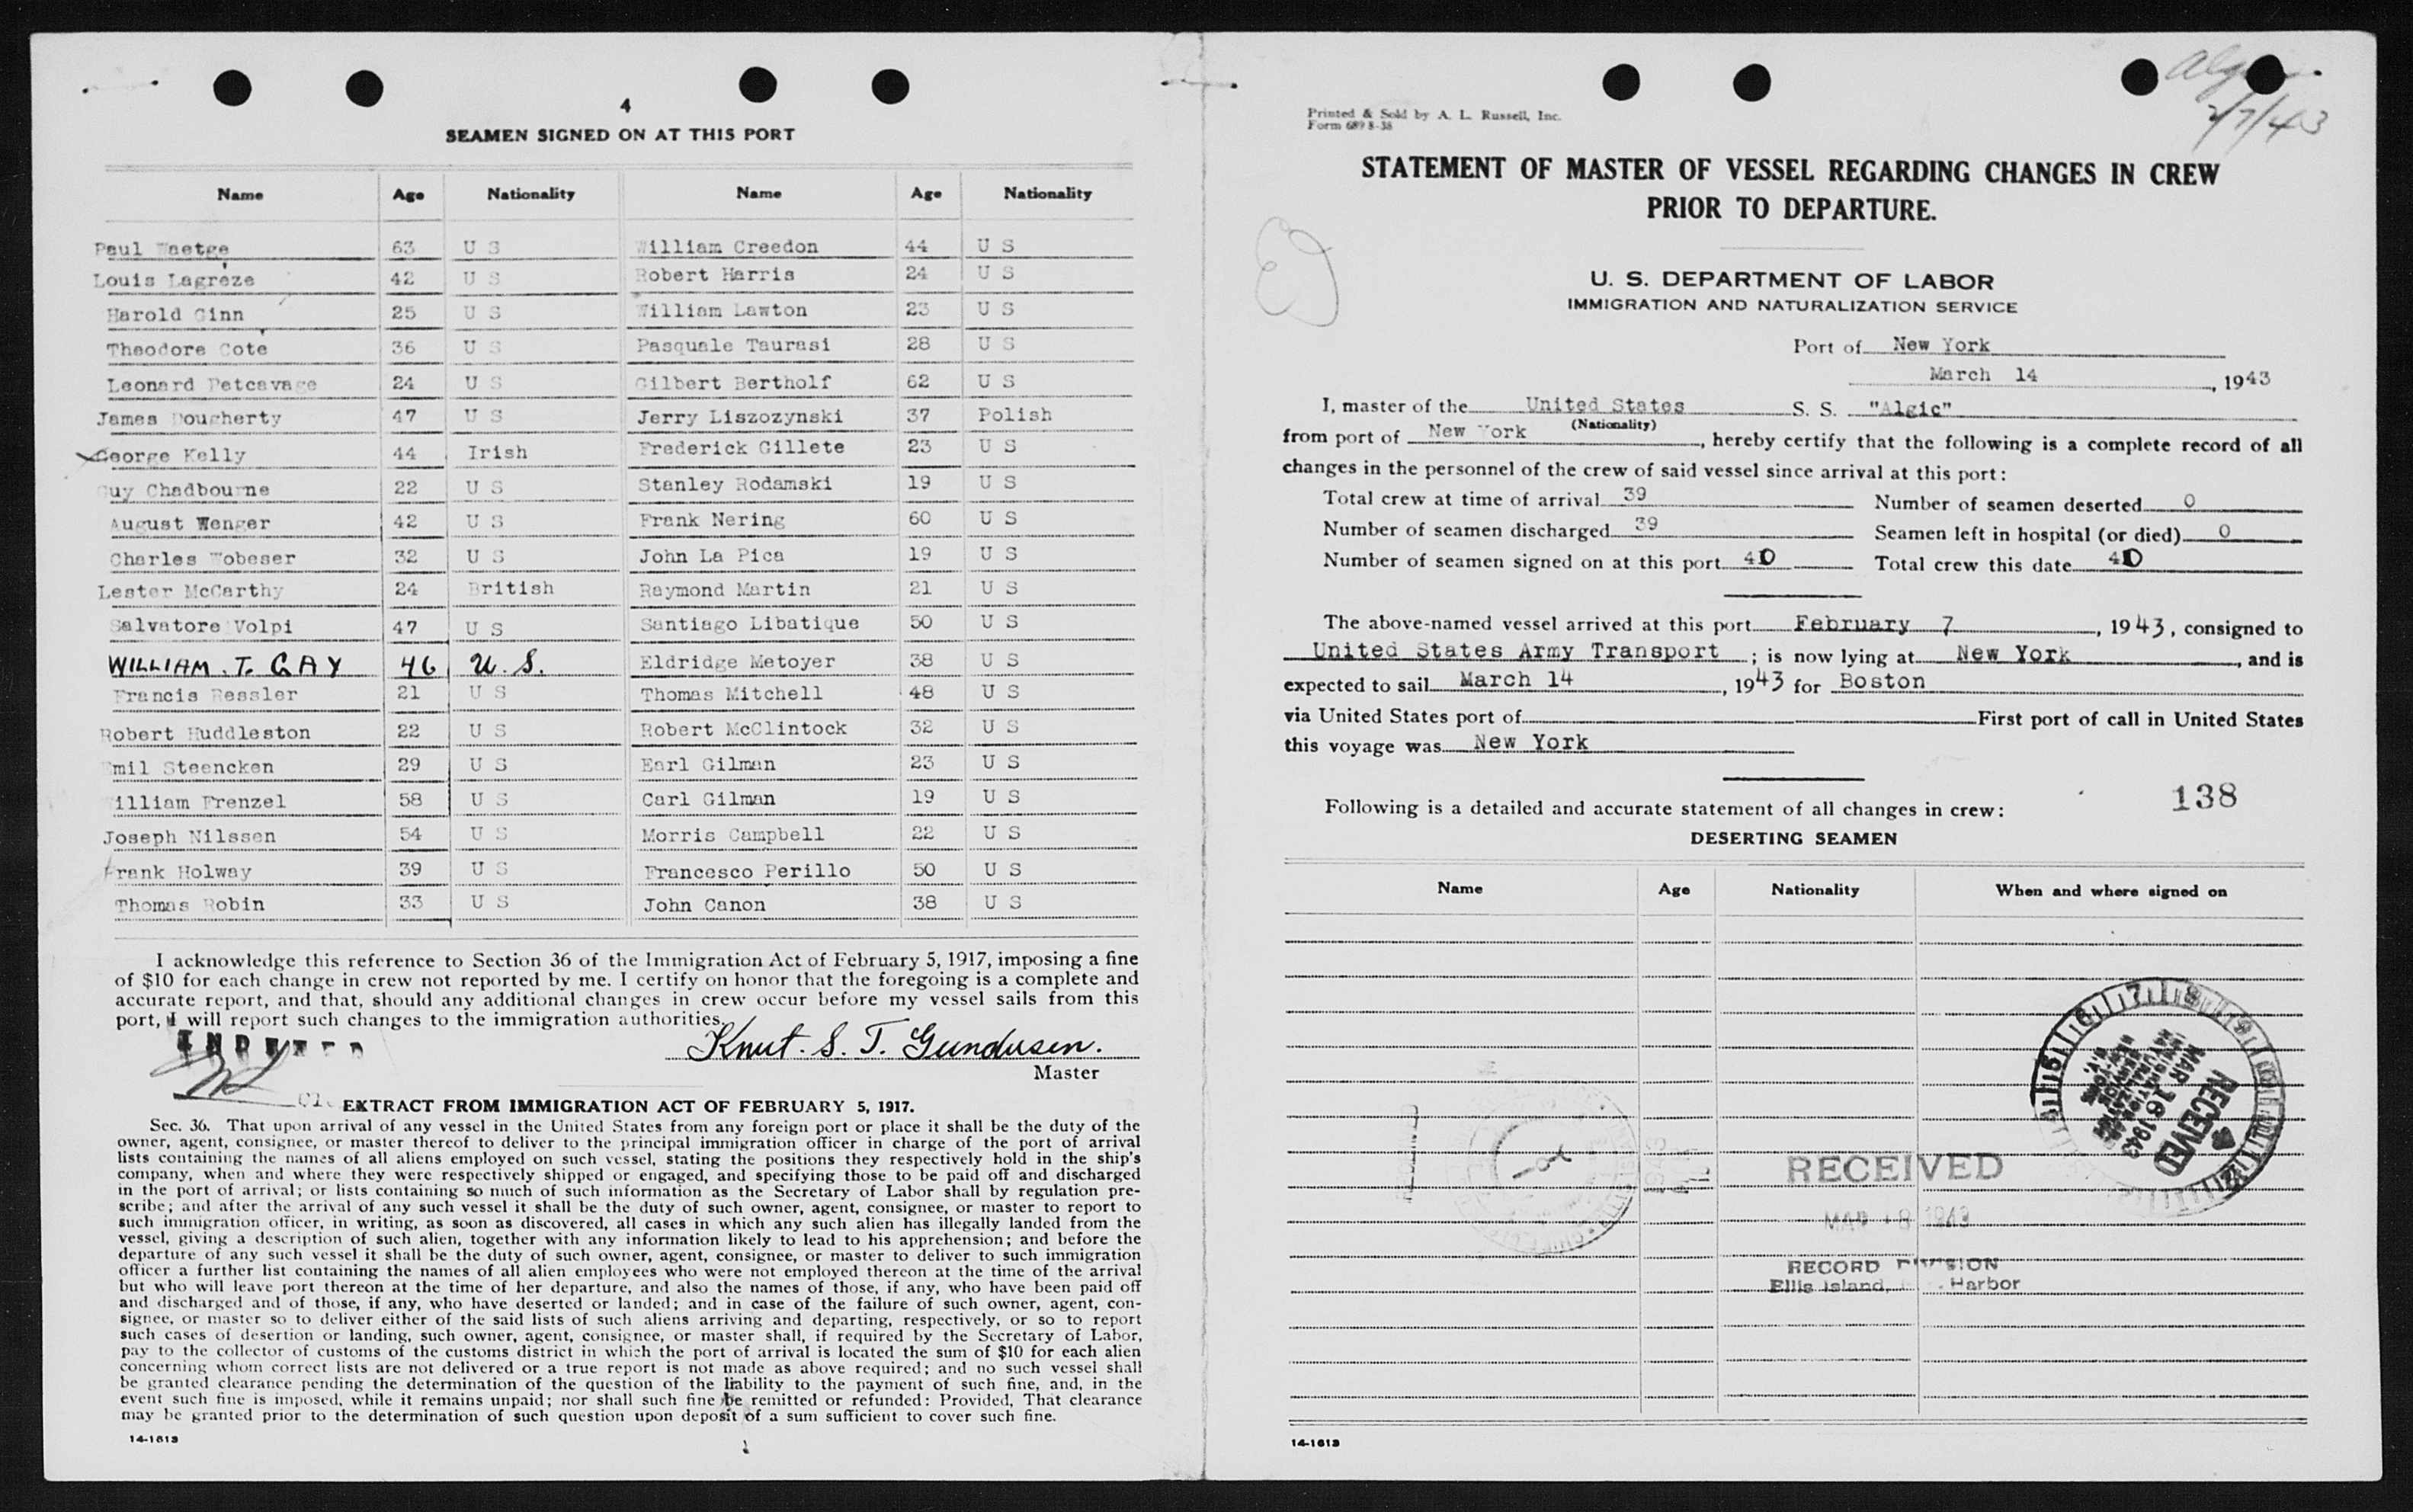 4
SEAMEN SIGNED ON AT THIS PORT
Name Age Nationality Name Age Nationality
Paul Waetge 63 U S William Creedon 44 U S
Louis Lagreze 42 U S Robert Harris 24 U S
Harold Ginn 25 U S William Lawton 23 U S
Theodore Cote 36 U S Pasquale Taurasi 28 U S
Leonard Petcavage 24 U S Gilbert Bertholf 62 U S
James Dougherty 47 U S Jerry Liszozynski 37 Polish
George Kelly 44 Irish Frederick Gillete 23 U S
Guy Chadbourne 22 U S Stanley Rodamski 19 U S
August Wenger 42 U S Frank Nering 60 U S
Charles Wobeser 32 U S John La Pica 19 U S
Lester McCarthy 24 British Raymond Martin 21 U S
Salvatore Volpi 47 U S Santiago Libatique 50 U S
WILLIAM. T. GAY 46 U. S. Eldridge Metoyer 38 U S
Francis Ressler 21 U S Thomas Mitchell 48 U S
Robert Huddleston 22 U S Robert McClintock 32 U S
Emil Steencken 29 U S Earl Gilman 23 U S
William Frenzel 58 U S Carl Gilman 19 U S
Joseph Nilssen 54 U S Morris Campbell 22 U S
Frank Holway 39 U S Francesco Perillo 50 U S
Thomas Robin 33 U S John Canon 38 U S
I acknowledge this reference to Section 36 of the Immigration Act of February 5, 1917, imposing a fine
of $10 for each change in crew not reported by me. I certify on honor that the foregoing is a complete and
accurate report, and that, should any additional changes in crew occur before my vessel sails from this
port, I will report such changes to the immigration authorities.
INDEXED
Knut. S. T. Gundusen.
Master
EXTRACT FROM IMMIGRATION ACT OF FEBRUARY 5, 1917.
Sec. 36. That upon arrival of any vessel in the United States from any foreign port or place it shall be the duty of the
owner, agent, consignee, or master thereof to deliver to the principal immigration officer in charge of the port of arrival
lists containing the names of all aliens employed on such vessel, stating the positions they respectively hold in the ship's
company, when and where they were respectively shipped or engaged, and specifying those to be paid off and discharged
in the port of arrival; or lists containing so much of such information as the Secretary of Labor shall by regulation pre-
scribe; and after the arrival of any such vessel it shall be the duty of such owner, agent, consignee, or master to report to
such immigration officer, in writing, as soon as discovered, all cases in which any such alien has illegally landed from the
vessel, giving a description of such alien, together with any information likely to lead to his apprehension; and before the
departure of any such vessel it shall be the duty of such owner, agent, consignee, or master to deliver to such immigration
officer a further list containing the names of all alien employees who were not employed thereon at the time of the arrival
but who will leave port thereon at the time of her departure, and also the names of those, if any, who have been paid off
and discharged and of those, if any, who have deserted or landed; and in case of the failure of such owner, agent, con-
signee, or master so to deliver either of the said lists of such aliens arriving and departing, respectively, or so to report
such cases of desertion or landing, such owner, agent, consignee, or master shall, if required by the Secretary of Labor,
pay to the collector of customs of the customs district in which the port of arrival is located the sum of $10 for each alien
concerning whom correct lists are not delivered or a true report is not made as above required; and no such vessel shall
be granted clearance pending the determination of the question of the liability to the payment of such fine, and, in the
event such fine is imposed, while it remains unpaid; nor shall such fine be remitted or refunded: Provided, That clearance
may be granted prior to the determination of such question upon deposit of a sum sufficient to cover such fine.
14-1613
Algic
2/7/43
Printed & Sold by A. L. Russell, Inc.
Form 689 8-38
STATEMENT OF MASTER OF VESSEL REGARDING CHANGES IN CREW
PRIOR TO DEPARTURE.
U. S. DEPARTMENT OF LABOR
IMMIGRATION AND NATURALIZATION SERVICE
Port of New York
March 14, 1943
I, master of the United States S. S. "Algic"
(Nationality)
from port of New York, hereby certify that the following is a complete record of all
changes in the personnel of the crew of said vessel since arrival at this port:
Total crew at time of arrival 39 Number of seamen deserted 0
Number of seamen discharged 39 Seamen left in hospital (or died) 0
Number of seamen signed on at this port 40 Total crew this date 40
The above-named vessel arrived at this port February 7, 1943, consigned to
United States Army Transport; is now lying at New York, and is
expected to sail March 14, 1943 for Boston
via United States port of First port of call in United States
this voyage was New York
138
Following is a detailed and accurate statement of all changes in crew:
DESERTING SEAMEN
Name Age Nationality When and where signed on
RECEIVED
MAR 16 1943
IMMIGRATION
RECEIVED
MAR 18 1943
RECORD DIVISION
Ellis Island, Harbor
14-1613